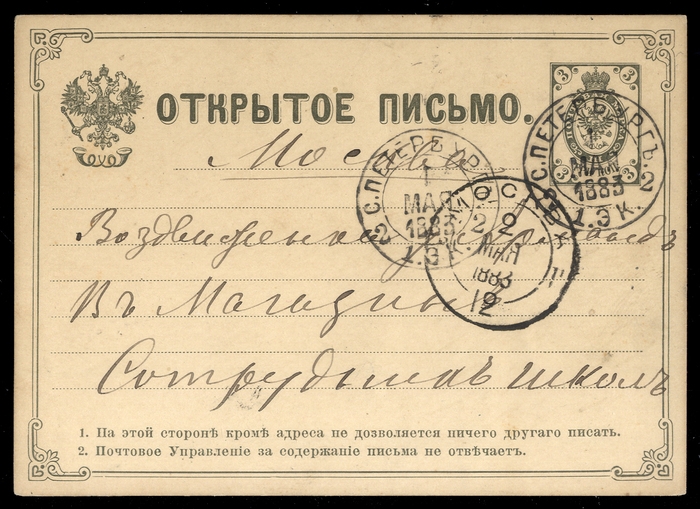 ОТКРЫТОЕ ПИСЬМО.
3 3
3 3
С.ПЕТЕРБУРГЪ. 2
1
МАЯ
1883
1.Э К.
С.ПЕТЕРБУРГЪ 2
1
МАЯ
1883
1.Э К.
МОСКВА
2
МАЯ
1883
12
Москва
Воздвиженка
Въ Магазинъ
Сотрудникъ школъ
1. На этой сторонѣ кромѣ адреса не дозволяется ничего другаго писать.
2. Почтовое Управленіе за содержаніе письма не отвѣчаетъ.